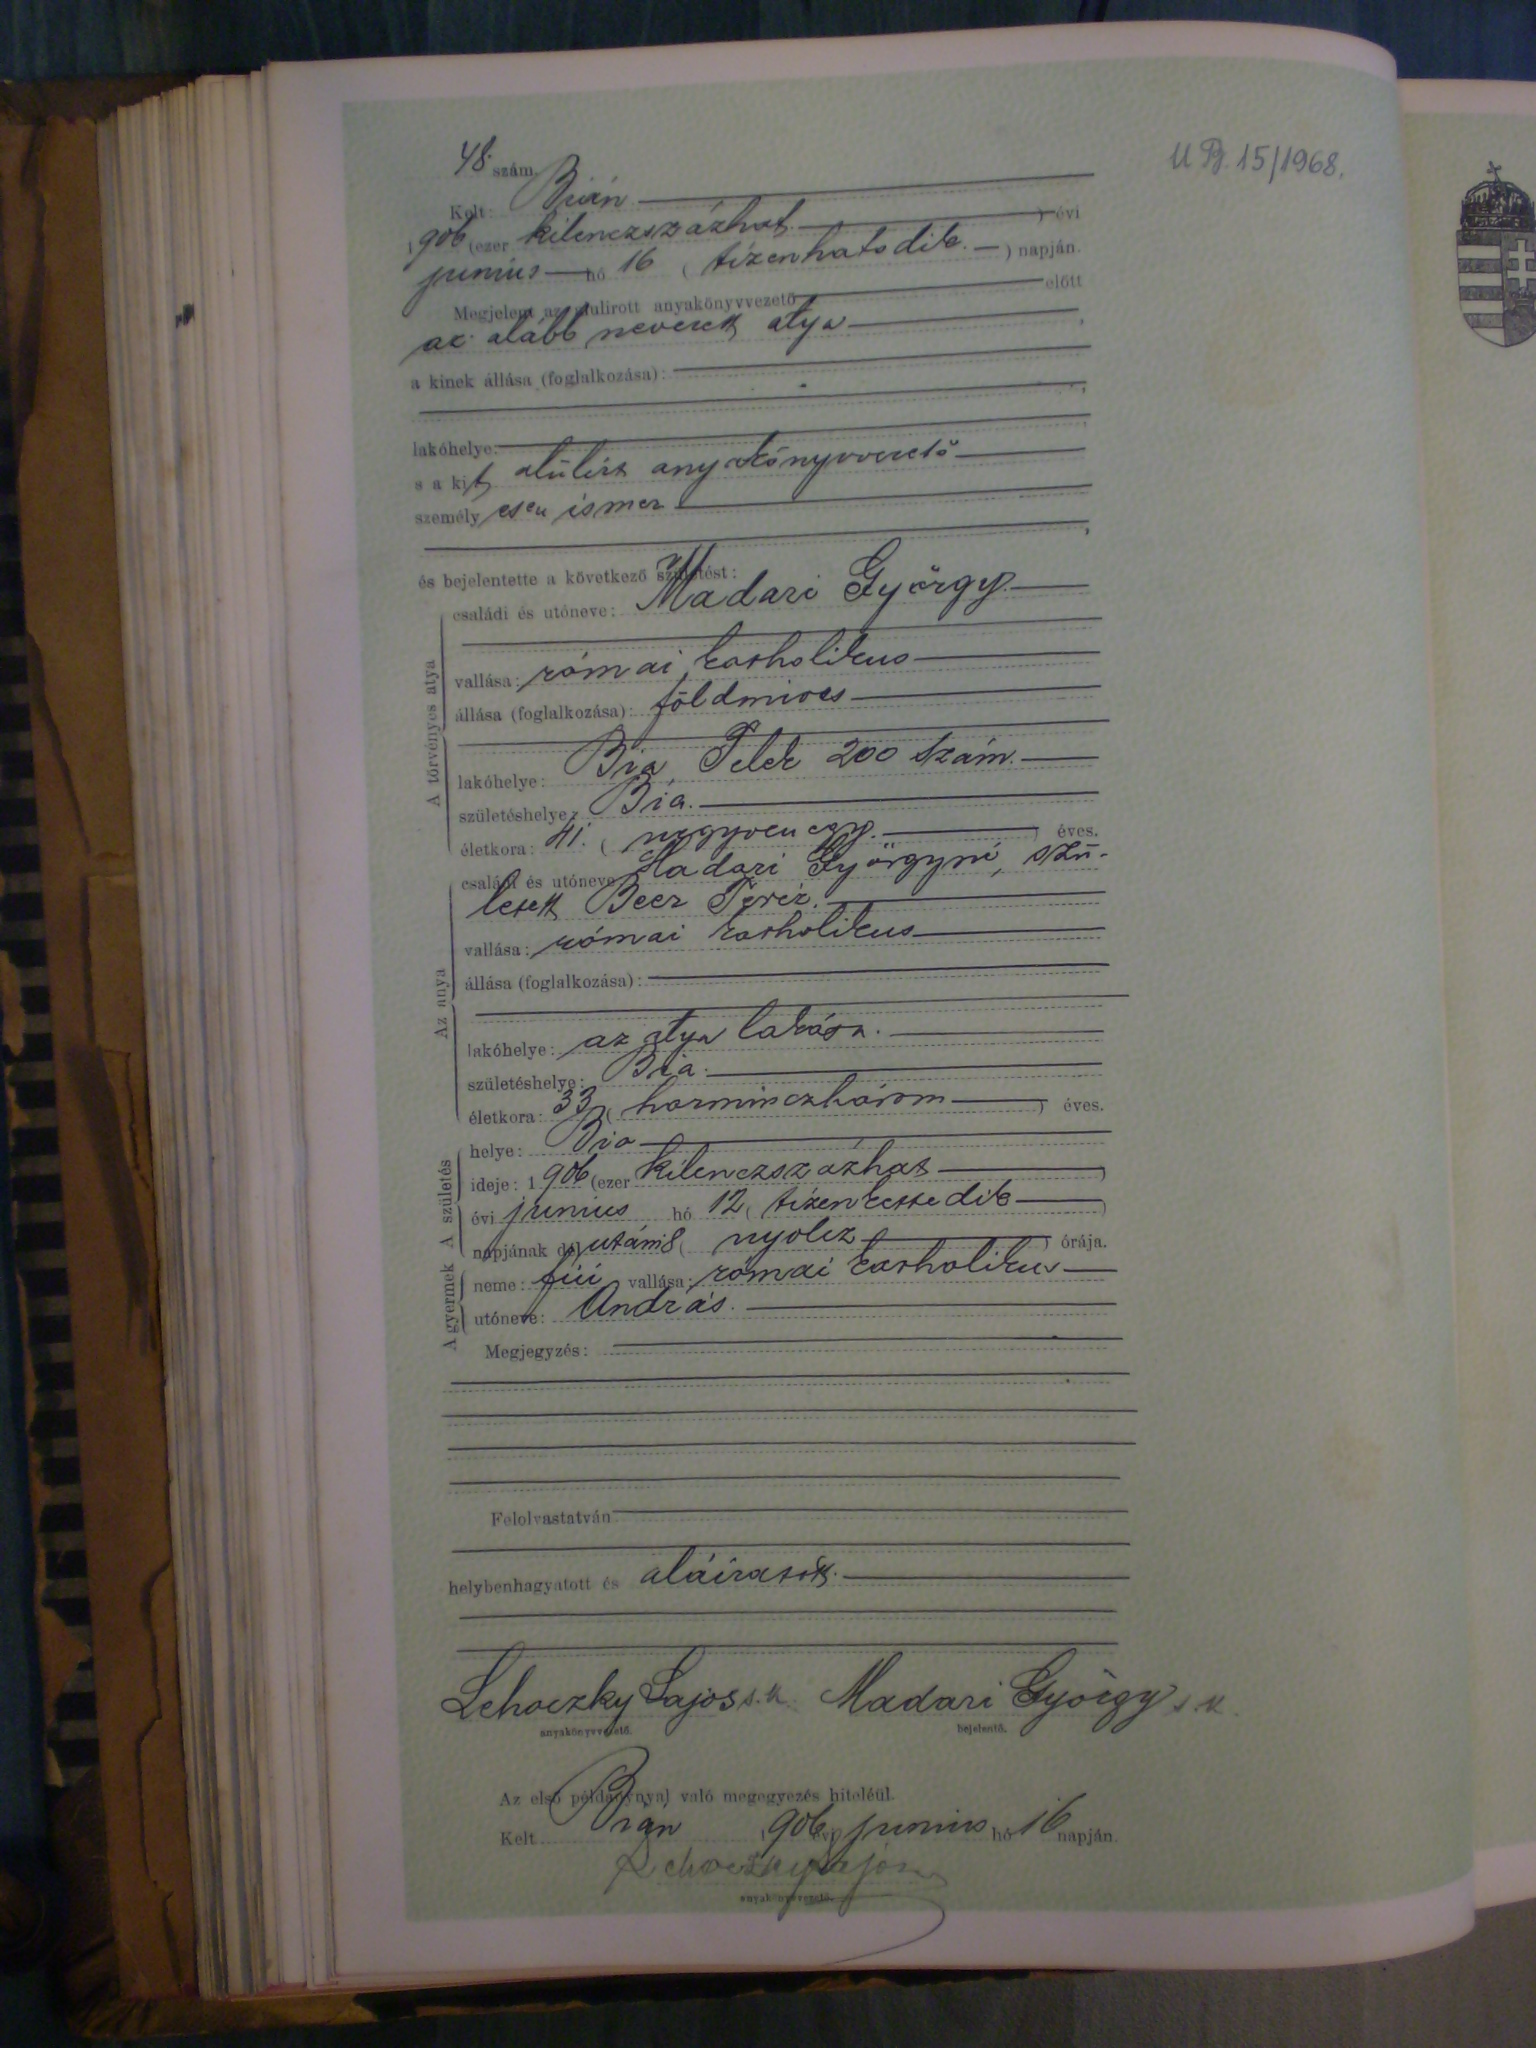 48. szám.
U Bj. 15/1968.
Kelt: Bián
1906 (ezer kilenczszázhat.) évi
junius hó 16 (tizenhatodik.) napján.
Megjelent az alulirott anyakönyvvezető előtt
az alább nevezett atya,
a kinek állása (foglalkozása):
lakóhelye:
s a kit alúlirt anyakönyvvezető
személyesen ismer,
és bejelentette a következő születést:
A törvényes atya
családi és utóneve: Madari György
vallása: római katholikus
állása (foglalkozása): földmives
lakóhelye: Bia, Telek 200 szám.
születéshelye: Bia.
életkora: 41. (negyvenegy.) éves.
Az anya
családi és utóneve: Madari Györgyné, szü-
letett Beer Teréz.
vallása: római katholikus
állása (foglalkozása):
lakóhelye: az atya lakása.
születéshelye: Bia.
életkora: 33 (harminczhárom) éves.
A születés
helye: Bia
ideje: 1906 (ezer kilenczszázhat)
évi junius hó 12 (tizenkettedik)
napjának dél utáni 8 (nyolcz) órája.
A gyermek
neme: fiú vallása: római katholikus
utóneve: András.
Megjegyzés:
Felolvastatván
helybenhagyatott és aláiratott.
Lehoczky Lajos s.k. Madari György s.k.
anyakönyvvezető. bejelentő.
Az első példánynyal való megegyezés hiteléül.
Kelt Bián 1906 évi junius hó 16 napján.
Lehoczky Lajos
anyakönyvvezető.